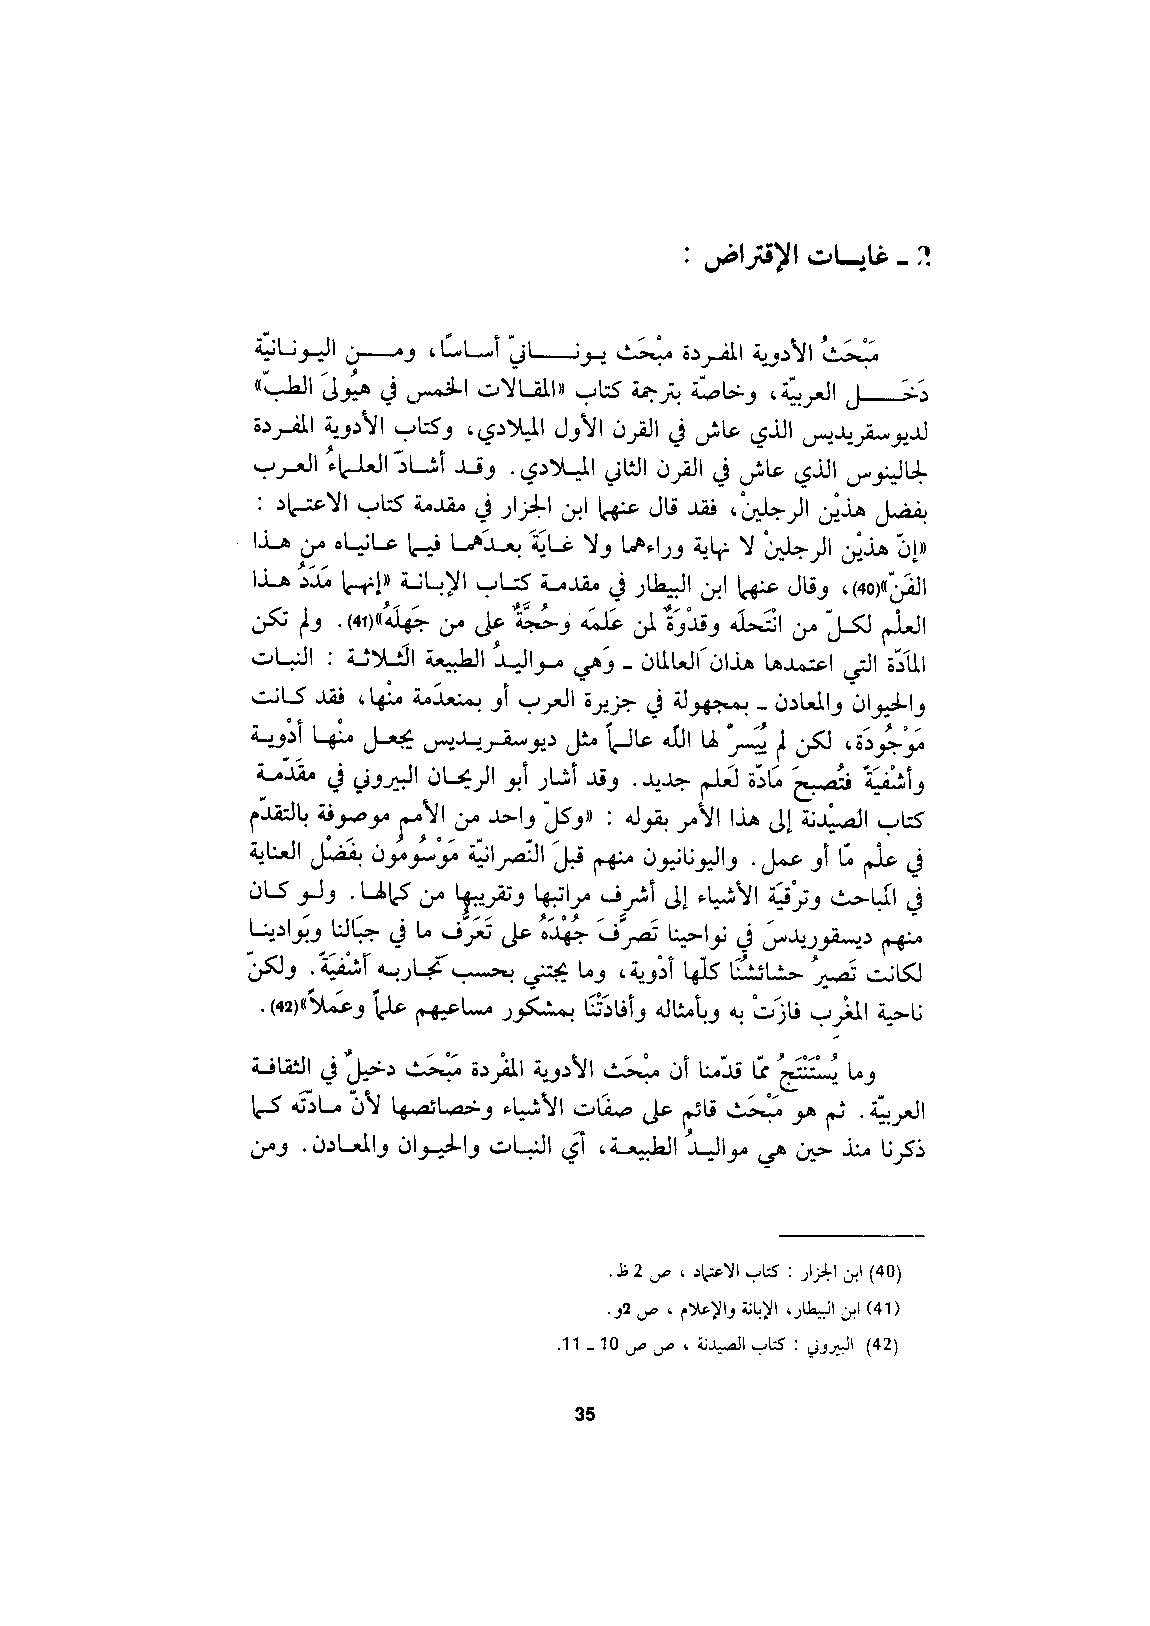 2 ـ غايـات الإقتراض :
مَبْحَثُ الأدوية المفـردة مبْحَث يـونـانيّ أسـاسـًا، ومـن اليـونـانيّة
دَخَـل العربيّة، وخاصّة بترجمة كتاب «المقـالات الخمس في هيُولىَ الطبّ»
لديوسقريديس الذي عاش في القرن الأول الميلادي، وكتاب الأدوية المفـردة
لجالينوس الذي عاش في القرن الثاني الميـلادي. وقـد أشـادَ العلـماءُ العـرب
بفضل هذيْن الرجلينْ، فقد قال عنهما ابن الجزار في مقدمة كتاب الاعتـماد :
«إنّ هذيْن الرجلينْ لا نهاية وراءهما ولا غـايَةَ بعـدَهمـا فيـما عـانيـاه من هـذا
الفَنّ»(40)، وقال عنهما ابن البيطار في مقدمة كتـاب الإبـانـة «إنهـما مَدَدُ هـذا
العلْم لكـلّ من انْتَحلَه وقدْوَةٌ لمن عَلمَه وَحُجَّةٌ على من جَهلَهُ»(41). ولم تكن
المادّة التي اعتمدها هذان العالمان ـ وَهي مـواليـدُ الطبيعة الثّـلاثـة : النبـات
والحيوان والمعادن ـ بمجهولة في جزيرة العرب أو بمنعدَمة منْها، فقد كـانت
مَوْجُودَة، لكن لم يُيَسرّ لها اللّه عالمـاً مثل ديوسقـريـديس يجعـل منْهـا أدْويـة
وأشْفيَةً فتُصبحَ مَادّة لعَلم جديد. وقد أشار أبو الريحـان البيروني في مقَدّمـة
كتاب الصيْدنة إلى هذا الأمر بقوله : «وكلّ واحد من الأمم موصوفة بالتقدّم
في علْم مّا أو عمل. واليونانيون منهم قبلَ النّصرانيّة مَوْسُومُون بفَضْل العناية
في المباحث وترْقيَة الأشياء إلى أشرف مراتبها وتقريبها من كمالهـا. ولـو كـان
منهم ديسقوريدسَ في نواحينا تَصرَّفَ جُهْدَهُ على تَعَرُّف ما في جبَالنا وبَوادينـا
لكانت تَصيرُ حشائشُنَا كلّها أدْوية، وما يجتني بحسب تجَاربـه أشْفيَةً. ولكنّ
ناحية المغْرب فازَتْ به وبأمثاله وأفادَتْنَا بمشكور مساعيهم علماً وعَمَلاً»(42).
وما يُسْتَنْتَجُ ممّا قدّمنا أن مبْحَث الأدوية المفْردة مَبْحَث دخيلٌ في الثقافـة
العربيّة. ثم هو مَبْحَث قائم على صفَات الأشياء وخصائصها لأنّ مـادّتَه كـما
ذكرنا منذ حين هي مواليـدُ الطبيعـة، أيَ النبـات والحيـوان والمعـادن. ومن
(40) ابن الجزار : كتاب الاعتماد ، ص 2 ظ.
(41) ابن البيطار، الإبانة والإعلام ، ص 2و.
(42) البيروني : كتاب الصيدنة ، ص ص 10 ـ 11.
35